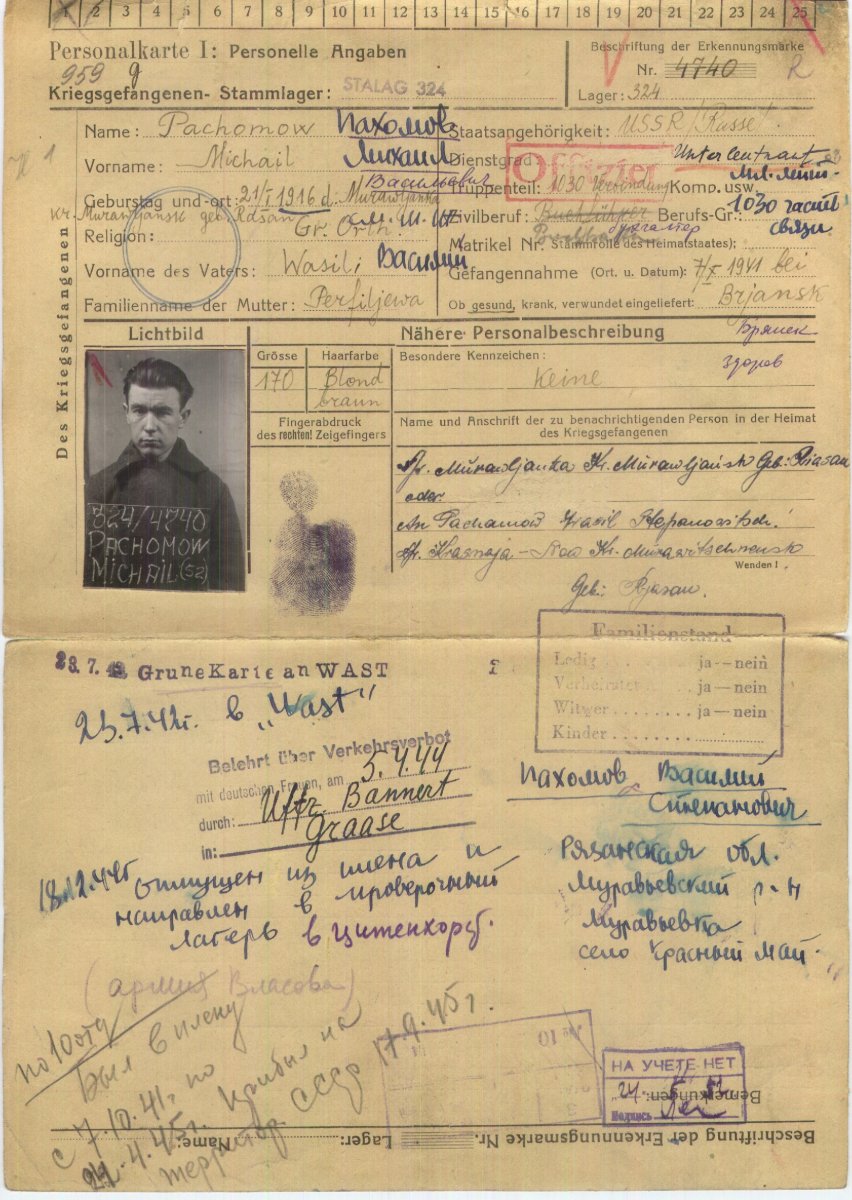 2 3 4 5 6 7 8 9 10 11 12 13 14 15 16 17 18 19 20 21 22 23 24 25
Personalkarte I: Personelle Angaben
959 g
Kriegsgefangenen- Stammlager: STALAG 324
Beschriftung der Erkennungsmarke
Nr. 4740 R
Lager: 324
Des Kriegsgefangenen
Name: Pachomow Пахомов
Vorname: Michail Михаил
Васильевич
Geburtstag und -ort: 21/I 1916 d. Murawljanka
Kr. Murawljansk geb. Rdsan
Religion: Gr. Orth.
Vorname des Vaters: Wasili Василий
Familienname der Mutter: Perfiljewa
Staatsangehörigkeit: USSR/Russe
Dienstgrad: Offizier Unterleutnant
Мл. лейт.
Truppenteil: 1030 Verbindung Komp. usw.
1030 часть
связи
Zivilberuf: Buchführer Berufs-Gr.:
бухгалтер
Matrikel Nr. (Stammrolle des Heimatstaates):
Gefangennahme (Ort u. Datum): 7/X 1941 bei
Brjansk
Ob gesund, krank, verwundet eingeliefert:
Брянск
здоров
Lichtbild
Nähere Personalbeschreibung
Grösse Haarfarbe
170 Blond
braun
Besondere Kennzeichen:
Keine
Fingerabdruck
des rechten! Zeigefingers
Name und Anschrift der zu benachrichtigenden Person in der Heimat
des Kriegsgefangenen
Murawljanka Kr. Murawljansk Geb: Rjasan
oder
An Pachamow Wasil Stepanowitsch!
Krasnaja
Wenden!
Geb: Rjasan.
324/4740
PACHOMOW
MICHAIL (52)
Familienstand
Ledig ja — nein
Verheiratet ja — nein
Witwer ja — nein
Kinder
23.7.42 Grune Karte an WAST
23.7.42г. в „Wast"
Belehrt über Verkehrsverbot
mit deutschen Frauen, am 5.4.44
durch: Uffz. Bannert
in: Graase
Пахомов Василий
Степанович
Рязанская обл.
Муравьевский р-н
Муравьевка
село Красный Май.
18.12.44г отпущен из плена и
направлен в проверочный
лагерь в Цитенхорст.
(армия Власова)
по 10 отд
Был в плену
с 7.10.41г. по
24.4.45г. Прибыл на
территор СССР 17.9.45г.
No 10
НА УЧЕТЕ НЕТ
Подпись
Bemerkungen:
Beschriftung der Erkennungsmarke Nr. Lager: Name: